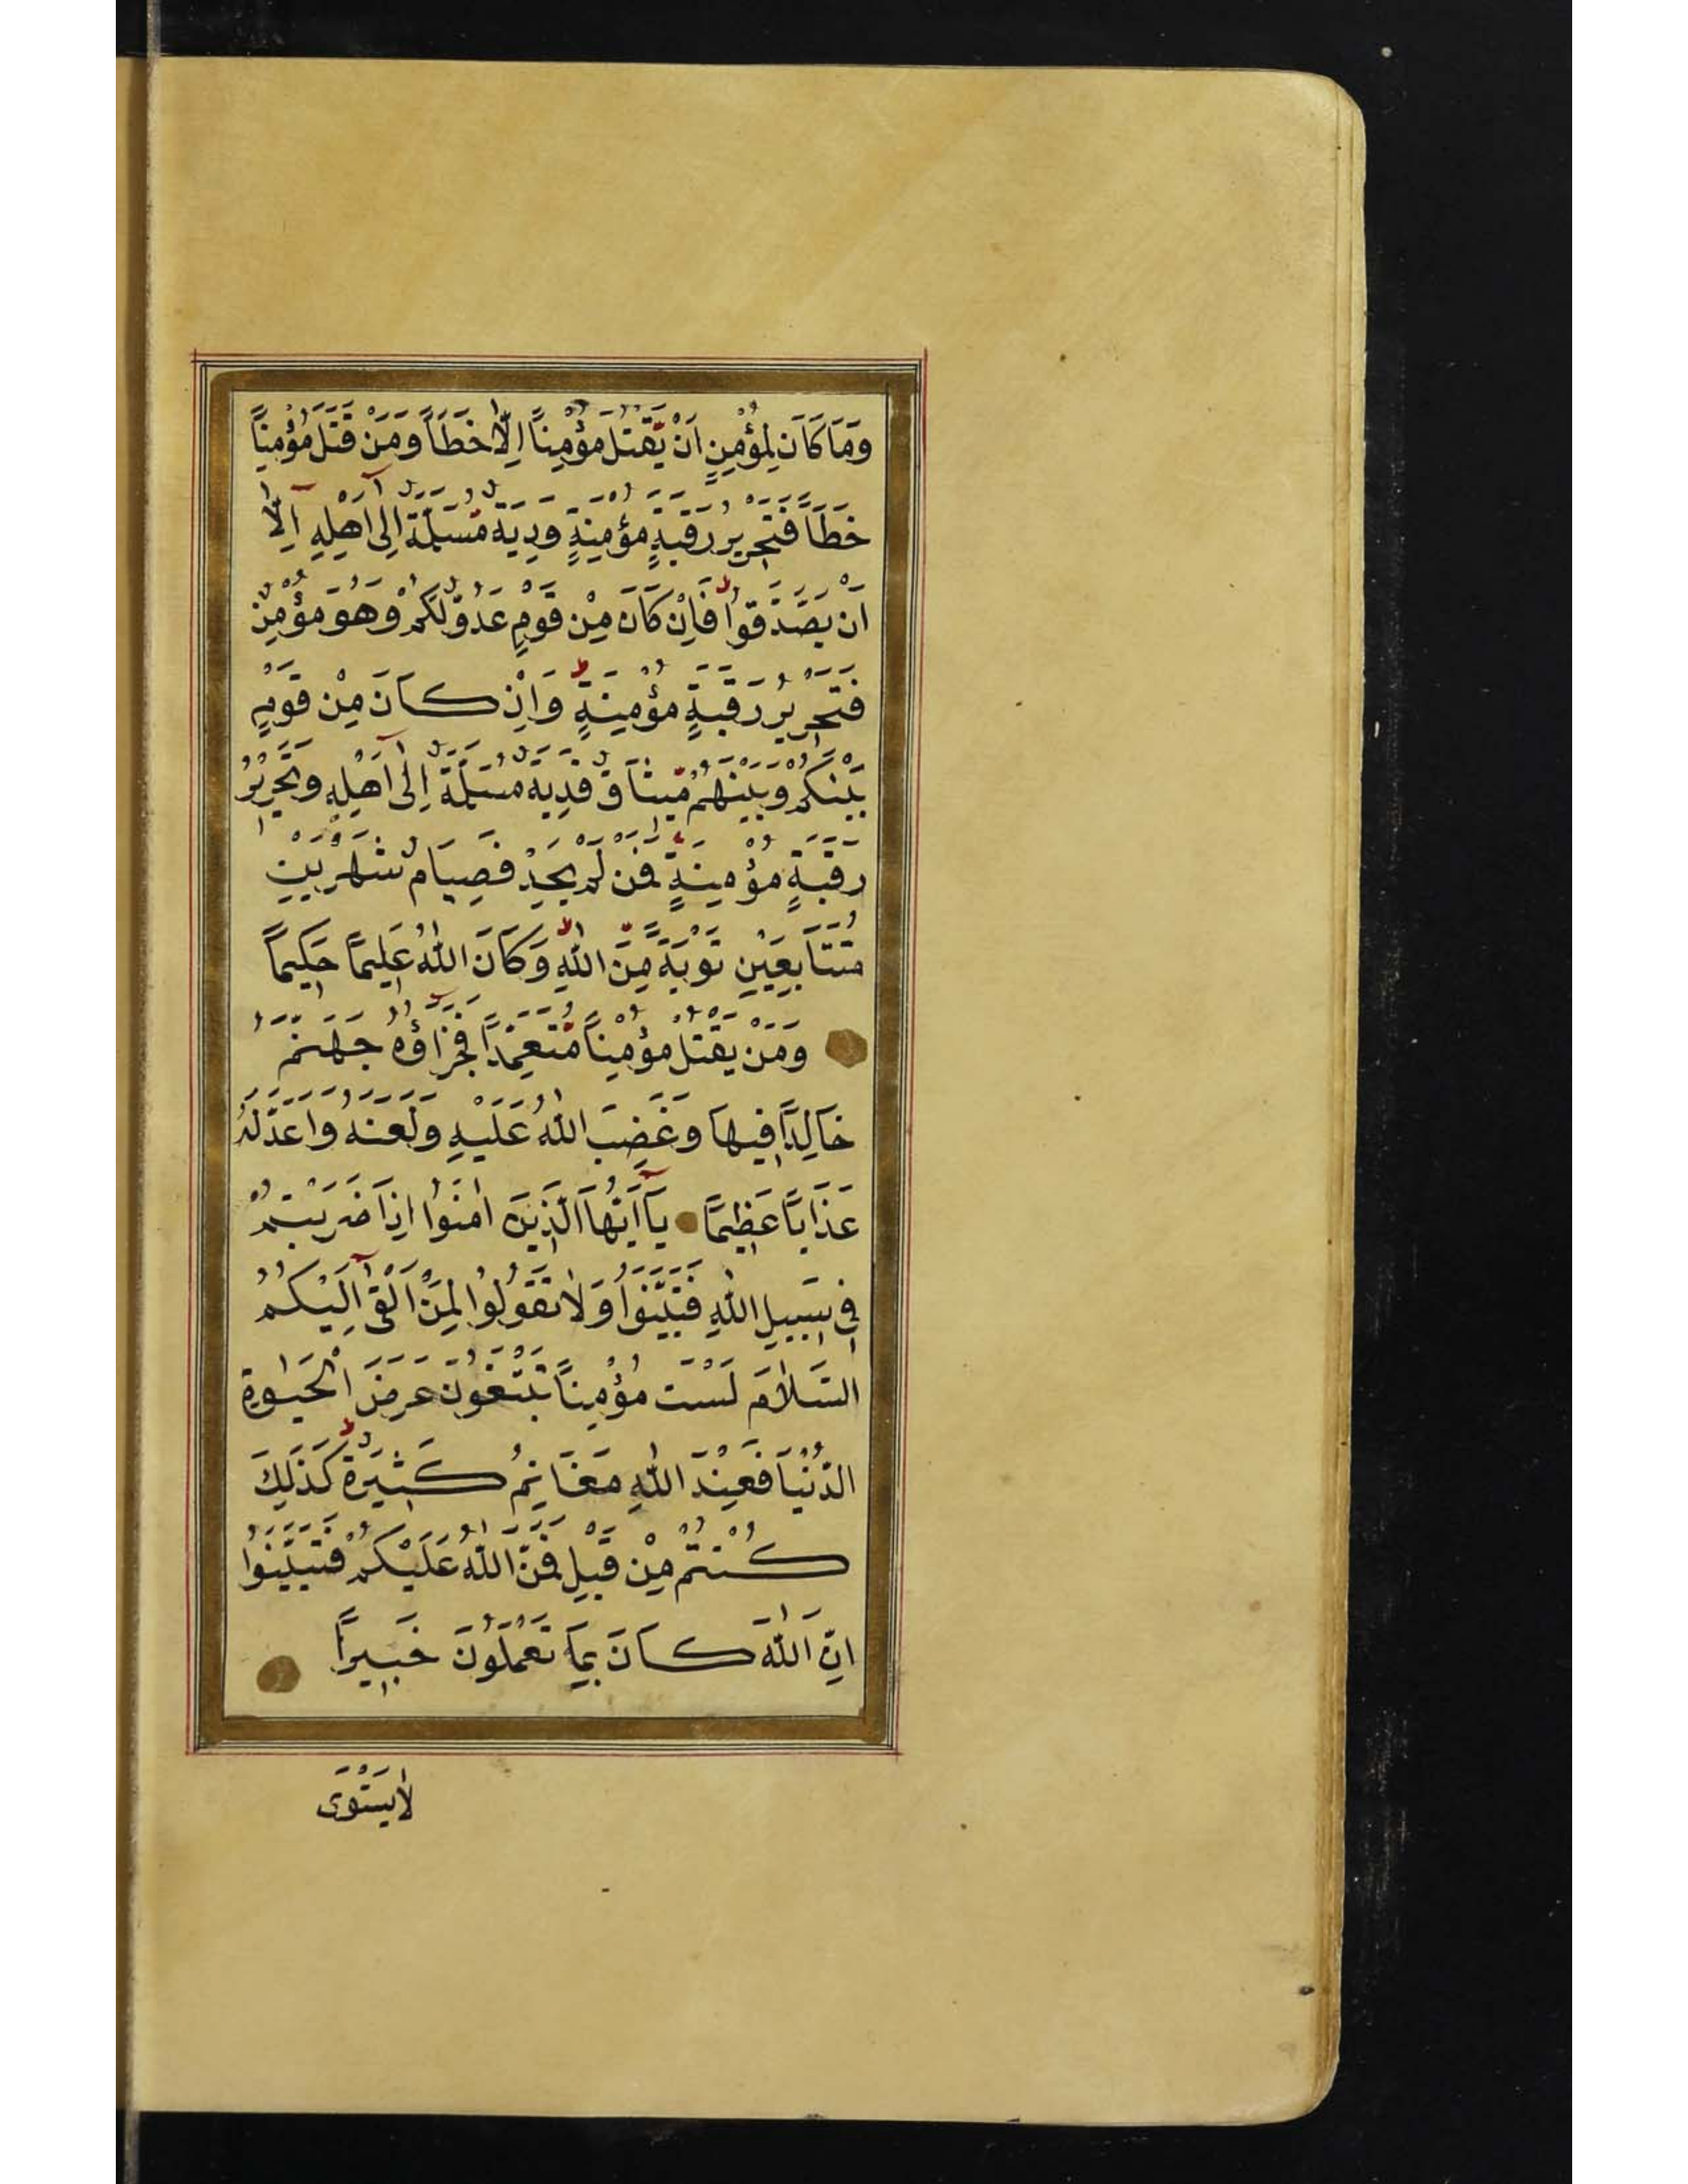 وَمَا كَانَ لِمُؤْمِنٍ اَنْ يَقْتُلَ مُؤْمِنًا اِلَّا خَطَـًٔا وَمَنْ قَتَلَ مُؤْمِنًا
خَطَـًٔا فَتَحْرِيرُ رَقَبَةٍ مُؤْمِنَةٍ وَدِيَةٌ مُسَلَّمَةٌ اِلٰٓى اَهْلِهِ اِلَّآ
اَنْ يَصَّدَّقُوا فَاِنْ كَانَ مِنْ قَوْمٍ عَدُوٍّ لَكُمْ وَهُوَ مُؤْمِنٌ
فَتَحْرِيرُ رَقَبَةٍ مُؤْمِنَةٍ وَاِنْ كَانَ مِنْ قَوْمٍ
بَيْنَكُمْ وَبَيْنَهُمْ مِيثَاقٌ فَدِيَةٌ مُسَلَّمَةٌ اِلٰٓى اَهْلِهِ وَتَحْرِيرُ
رَقَبَةٍ مُؤْمِنَةٍ فَمَنْ لَمْ يَجِدْ فَصِيَامُ شَهْرَيْنِ
مُتَتَابِعَيْنِ تَوْبَةً مِنَ اللّٰهِ وَكَانَ اللّٰهُ عَلِيمًا حَكِيمًا
وَمَنْ يَقْتُلْ مُؤْمِنًا مُتَعَمِّدًا فَجَزَآؤُهُ جَهَنَّمُ
خَالِدًا فِيهَا وَغَضِبَ اللّٰهُ عَلَيْهِ وَلَعَنَهُ وَاَعَدَّ لَهُ
عَذَابًا عَظِيمًا يَآ اَيُّهَا الَّذِينَ اٰمَنُوا اِذَا ضَرَبْتُمْ
فِى سَبِيلِ اللّٰهِ فَتَبَيَّنُوا وَلَا تَقُولُوا لِمَنْ اَلْقٰٓى اِلَيْكُمُ
السَّلَامَ لَسْتَ مُؤْمِنًا تَبْتَغُونَ عَرَضَ الْحَيٰوةِ
الدُّنْيَا فَعِنْدَ اللّٰهِ مَغَانِمُ كَثِيرَةٌ كَذٰلِكَ
كُنْتُمْ مِنْ قَبْلُ فَمَنَّ اللّٰهُ عَلَيْكُمْ فَتَبَيَّنُوا
اِنَّ اللّٰهَ كَانَ بِمَا تَعْمَلُونَ خَبِيرًا
لَا يَسْتَوِى